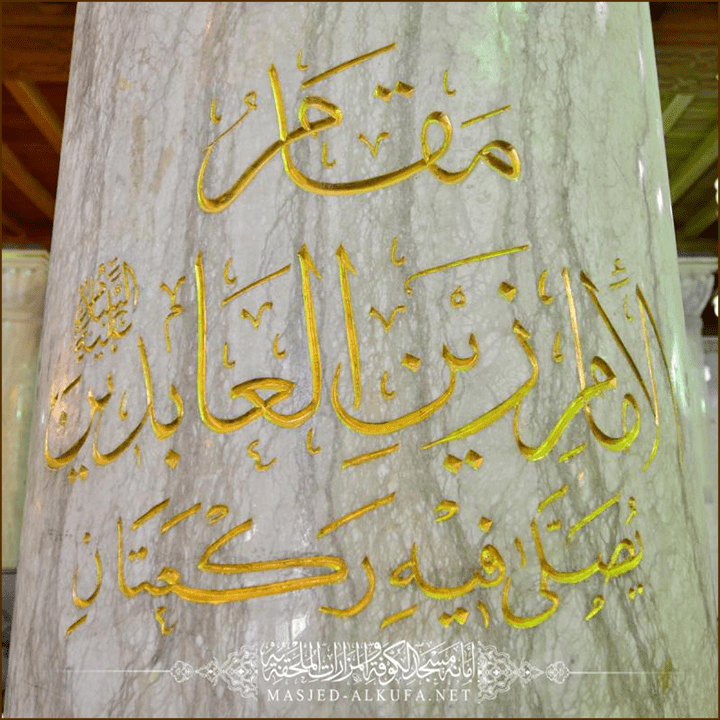 مَقَامُ
لأمامِ زَيْنِ العَابِدِين عليه السلام
يُصَلّى فِيْهِ رَكْعَتَانِ
أمانة مسجد الكوفة والمزارات الملحقة به
MASJED-ALKUFA.NET